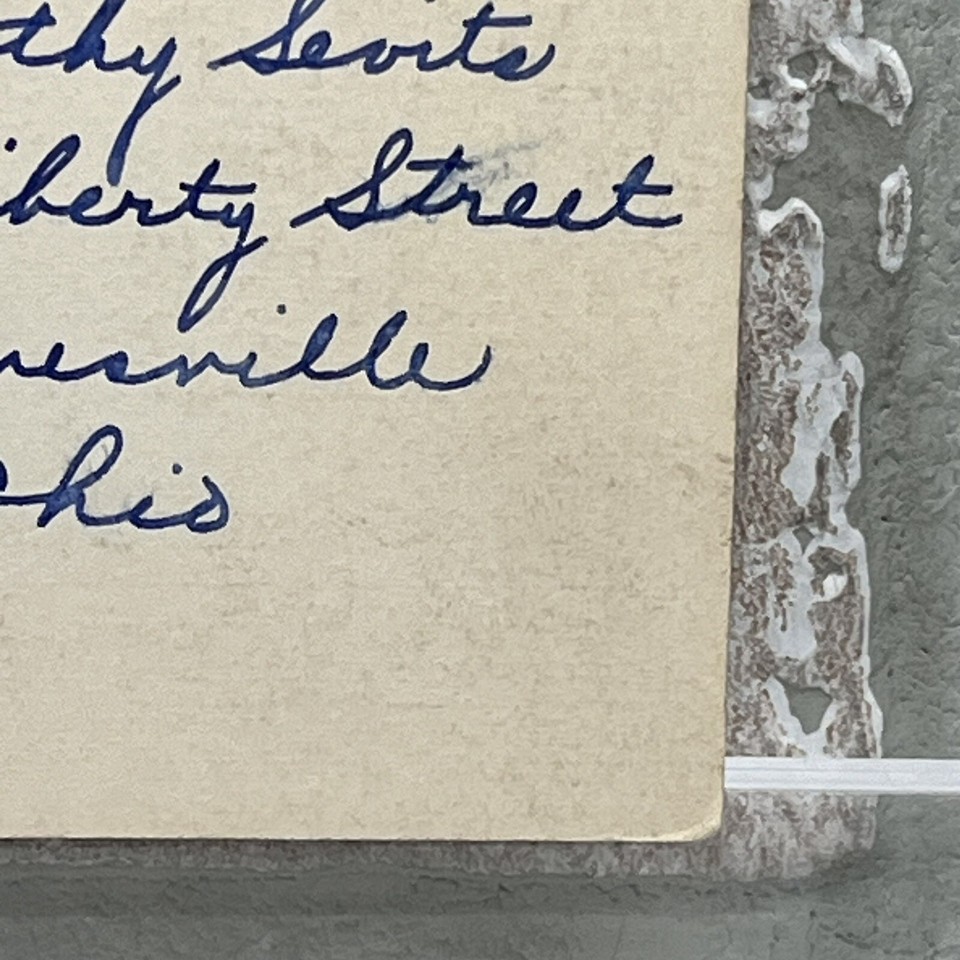 thy Sevits
iberty Street
nesville
Ohio